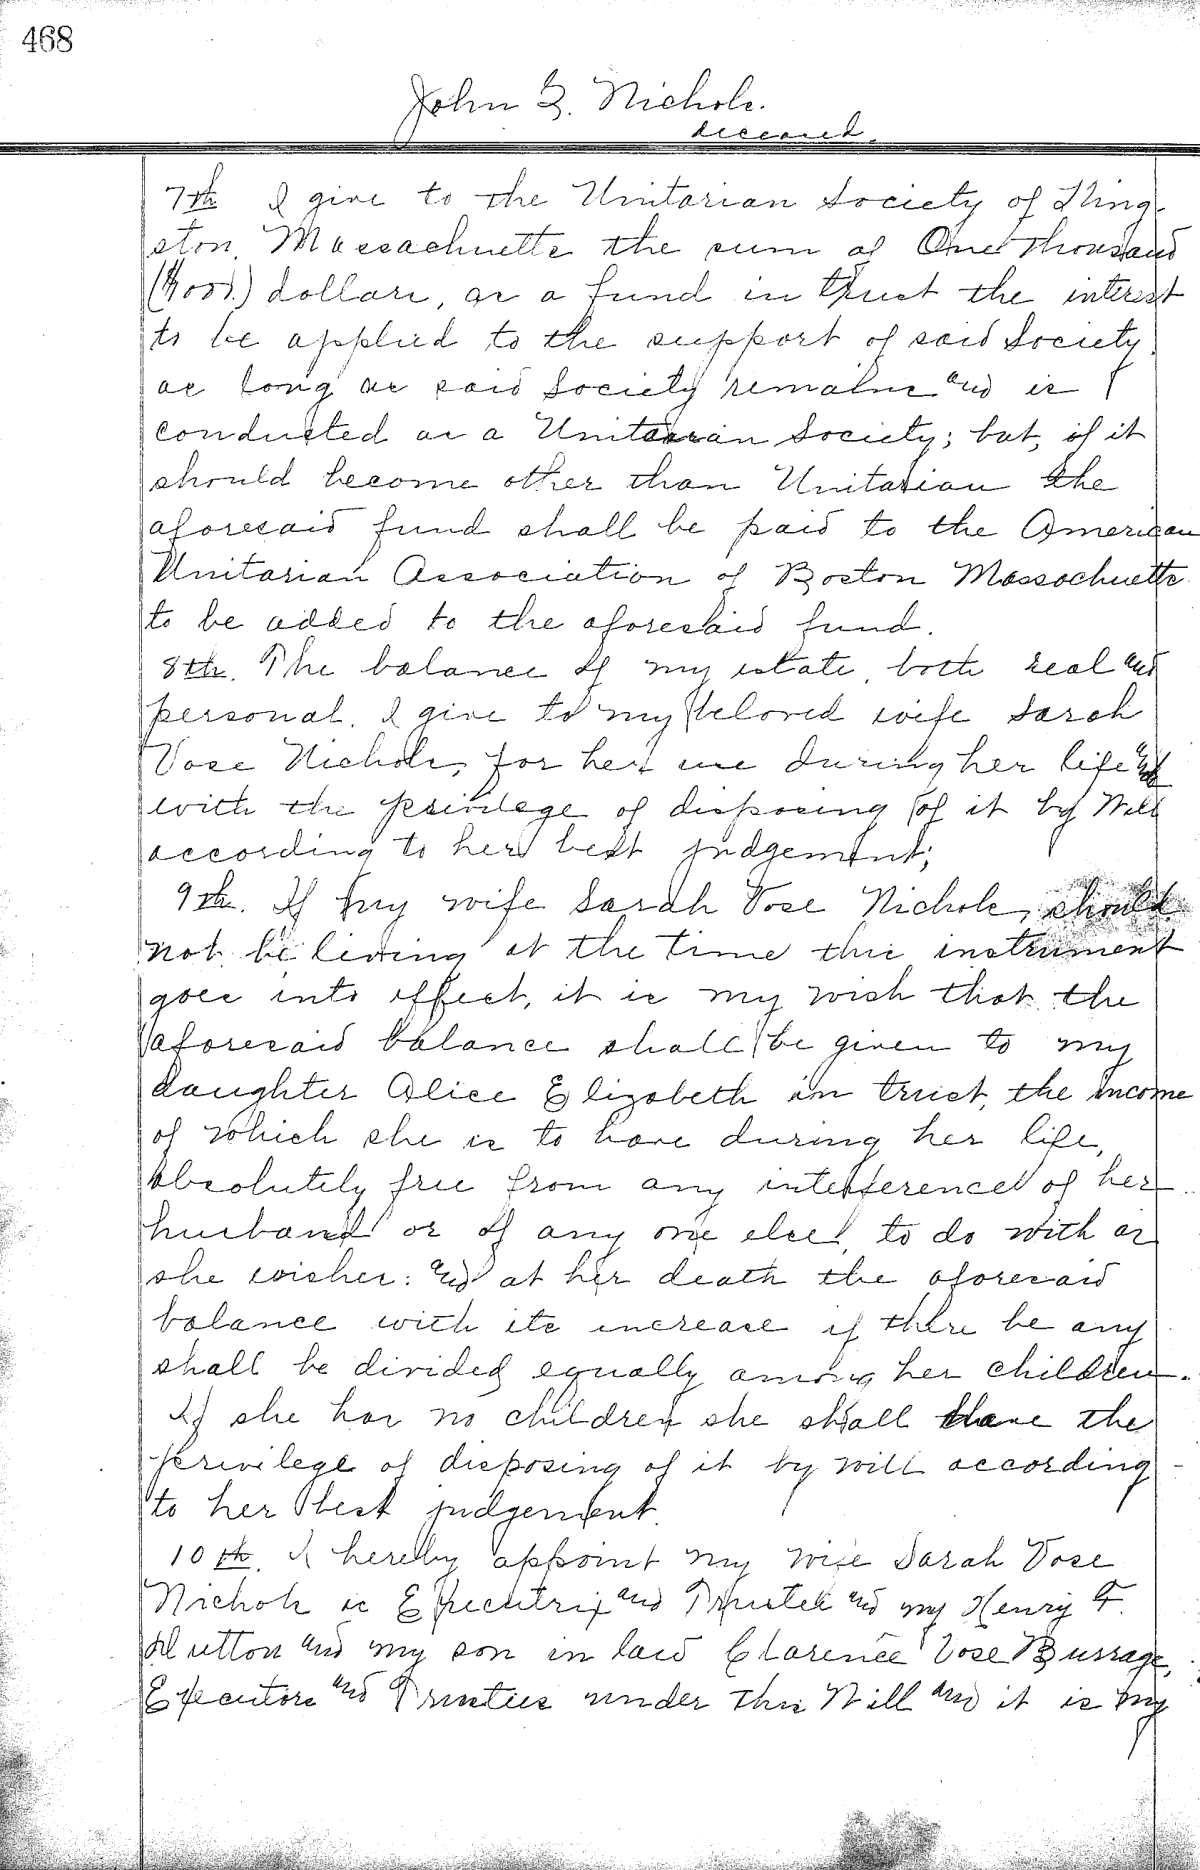 468
John Q. Nichols.
deceased.
7th I give to the Unitarian Society of King-
ston, Massachusetts the sum of One thousand
($1000.) dollars, as a fund in trust the interest
to be applied to the support of said Society,
as long as said Society remains and is
conducted as a Unitarian Society; but, if it
should become other than Unitarian the
aforesaid fund shall be paid to the American
Unitarian Association of Boston Massachusetts
to be added to the aforesaid fund.
8th. The balance of my estate, both real and
personal, I give to my beloved wife Sarah
Vose Nichols, for her use during her life and
with the privilege of disposing of it by Will
according to her best judgement;
9th. If my wife Sarah Vose Nichols, should
not be living at the time this instrument
goes into effect, it is my wish that the
aforesaid balance shall be given to my
daughter Alice Elizabeth in trust, the income
of which she is to have during her life,
absolutely free from any interference of her
husband or of any one else, to do with as
she wishes: and at her death the aforesaid
balance with its increase if there be any
shall be divided equally among her children.
If she has no children she shall have the
privilege of disposing of it by will according
to her best judgement.
10th. I hereby appoint my wife Sarah Vose
Nichols is Executrix and Trustee and my Henry F.
Hutton and my son in law Clarence Vose Burrage,
Executors and Trustees under this Will and it is my